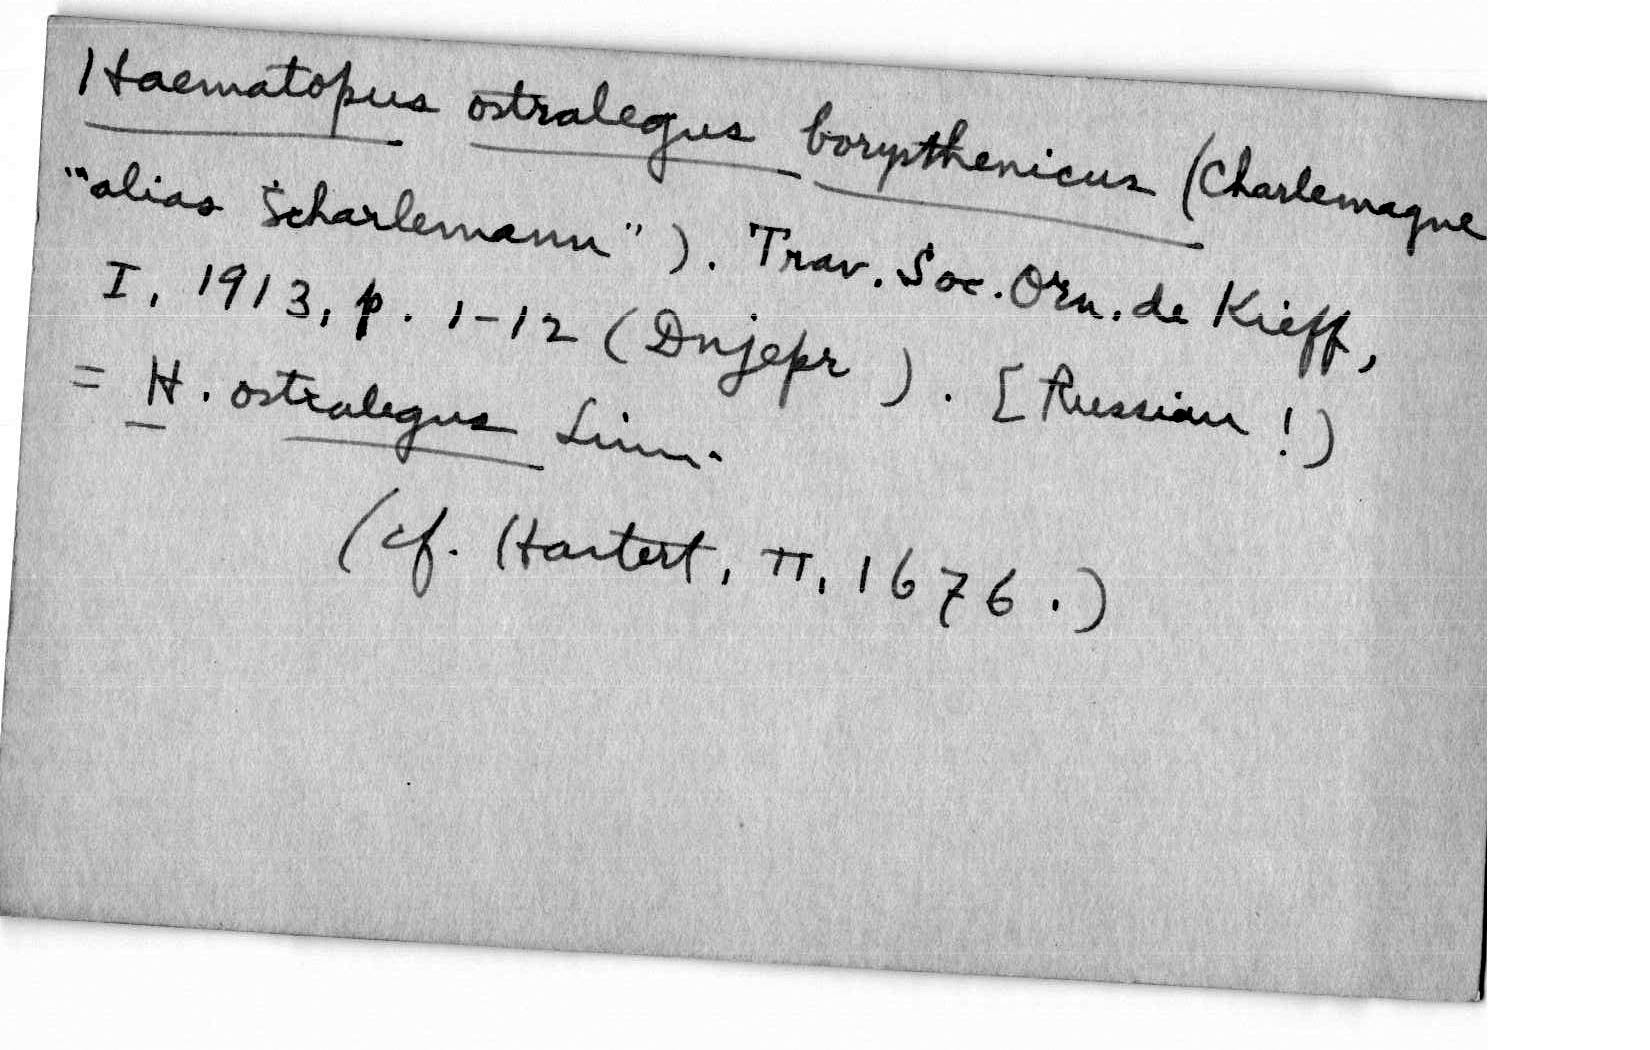 Haematopus ostralegus borysthenicus (Charlemagne
"alias Scharlemann"). Trav. Soc. Orn. de Kieff,
I, 1913, p. 1-12 (Dnjepr). [Russian!)
= H. ostralegus Linn.
(cf. Hartert, II, 1676.)